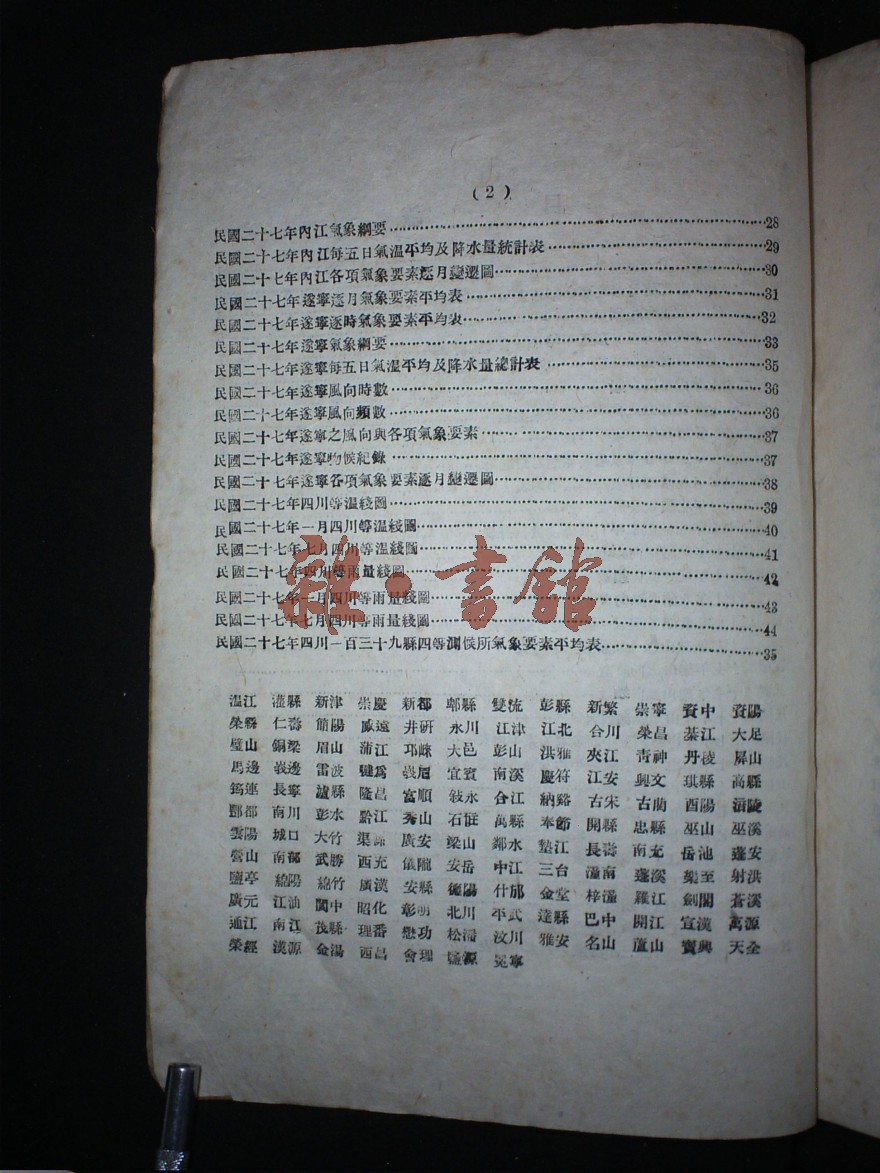 (2)
民國二十七年內江氣象綱要……28
民國二十七年內江每五日氣溫平均及降水量統計表……29
民國二十七年內江各項氣象要素逐月變遷圖……30
民國二十七年遂寧逐月氣象要素平均表……31
民國二十七年遂寧逐時氣象要素平均表……32
民國二十七年遂寧氣象綱要……33
民國二十七年遂寧每五日氣溫平均及降水量總計表……35
民國二十七年遂寧風向時數……36
民國二十七年遂寧風向頻數……36
民國二十七年遂寧之風向與各項氣象要素……37
民國二十七年遂寧物候紀錄……37
民國二十七年遂寧各項氣象要素逐月變遷圖……38
民國二十七年四川等溫綫圖……39
民國二十七年一月四川等溫綫圖……40
民國二十七年七月四川等溫綫圖……41
民國二十七年四川等雨量綫圖……42
民國二十七年一月四川等雨量綫圖……43
民國二十七年七月四川等雨量綫圖……44
民國二十七年四川一百三十九縣四等測候所氣象要素平均表……35
雜·書館
溫江 灌縣 新津 崇慶 新都 郫縣 雙流 彭縣 新繁 崇寧 資中 資陽
榮縣 仁壽 簡陽 威遠 井研 永川 江津 江北 合川 榮昌 綦江 大足
璧山 銅梁 眉山 蒲江 邛崍 大邑 彭山 洪雅 夾江 青神 丹稜 屏山
馬邊 峩邊 雷波 犍爲 峩眉 宜賓 南溪 慶符 江安 興文 珙縣 高縣
筠連 長寧 瀘縣 隆昌 富順 敍永 合江 納谿 古宋 古藺 酉陽 涪陵
酆都 南川 彭水 黔江 秀山 石砫 萬縣 奉節 開縣 忠縣 巫山 巫溪
雲陽 城口 大竹 渠縣 廣安 梁山 鄰水 墊江 長壽 南充 岳池 蓬安
營山 南部 武勝 西充 儀隴 安岳 中江 三台 潼南 蓬溪 樂至 射洪
鹽亭 綿陽 綿竹 廣漢 安縣 德陽 什邡 金堂 梓潼 羅江 劍閣 蒼溪
廣元 江油 閬中 昭化 彰明 北川 平武 達縣 巴中 開江 宣漢 萬源
通江 南江 茂縣 理番 懋功 松潘 汶川 雅安 名山 蘆山 寶興 天全
榮經 漢源 金湯 西昌 會理 鹽源 冕寧